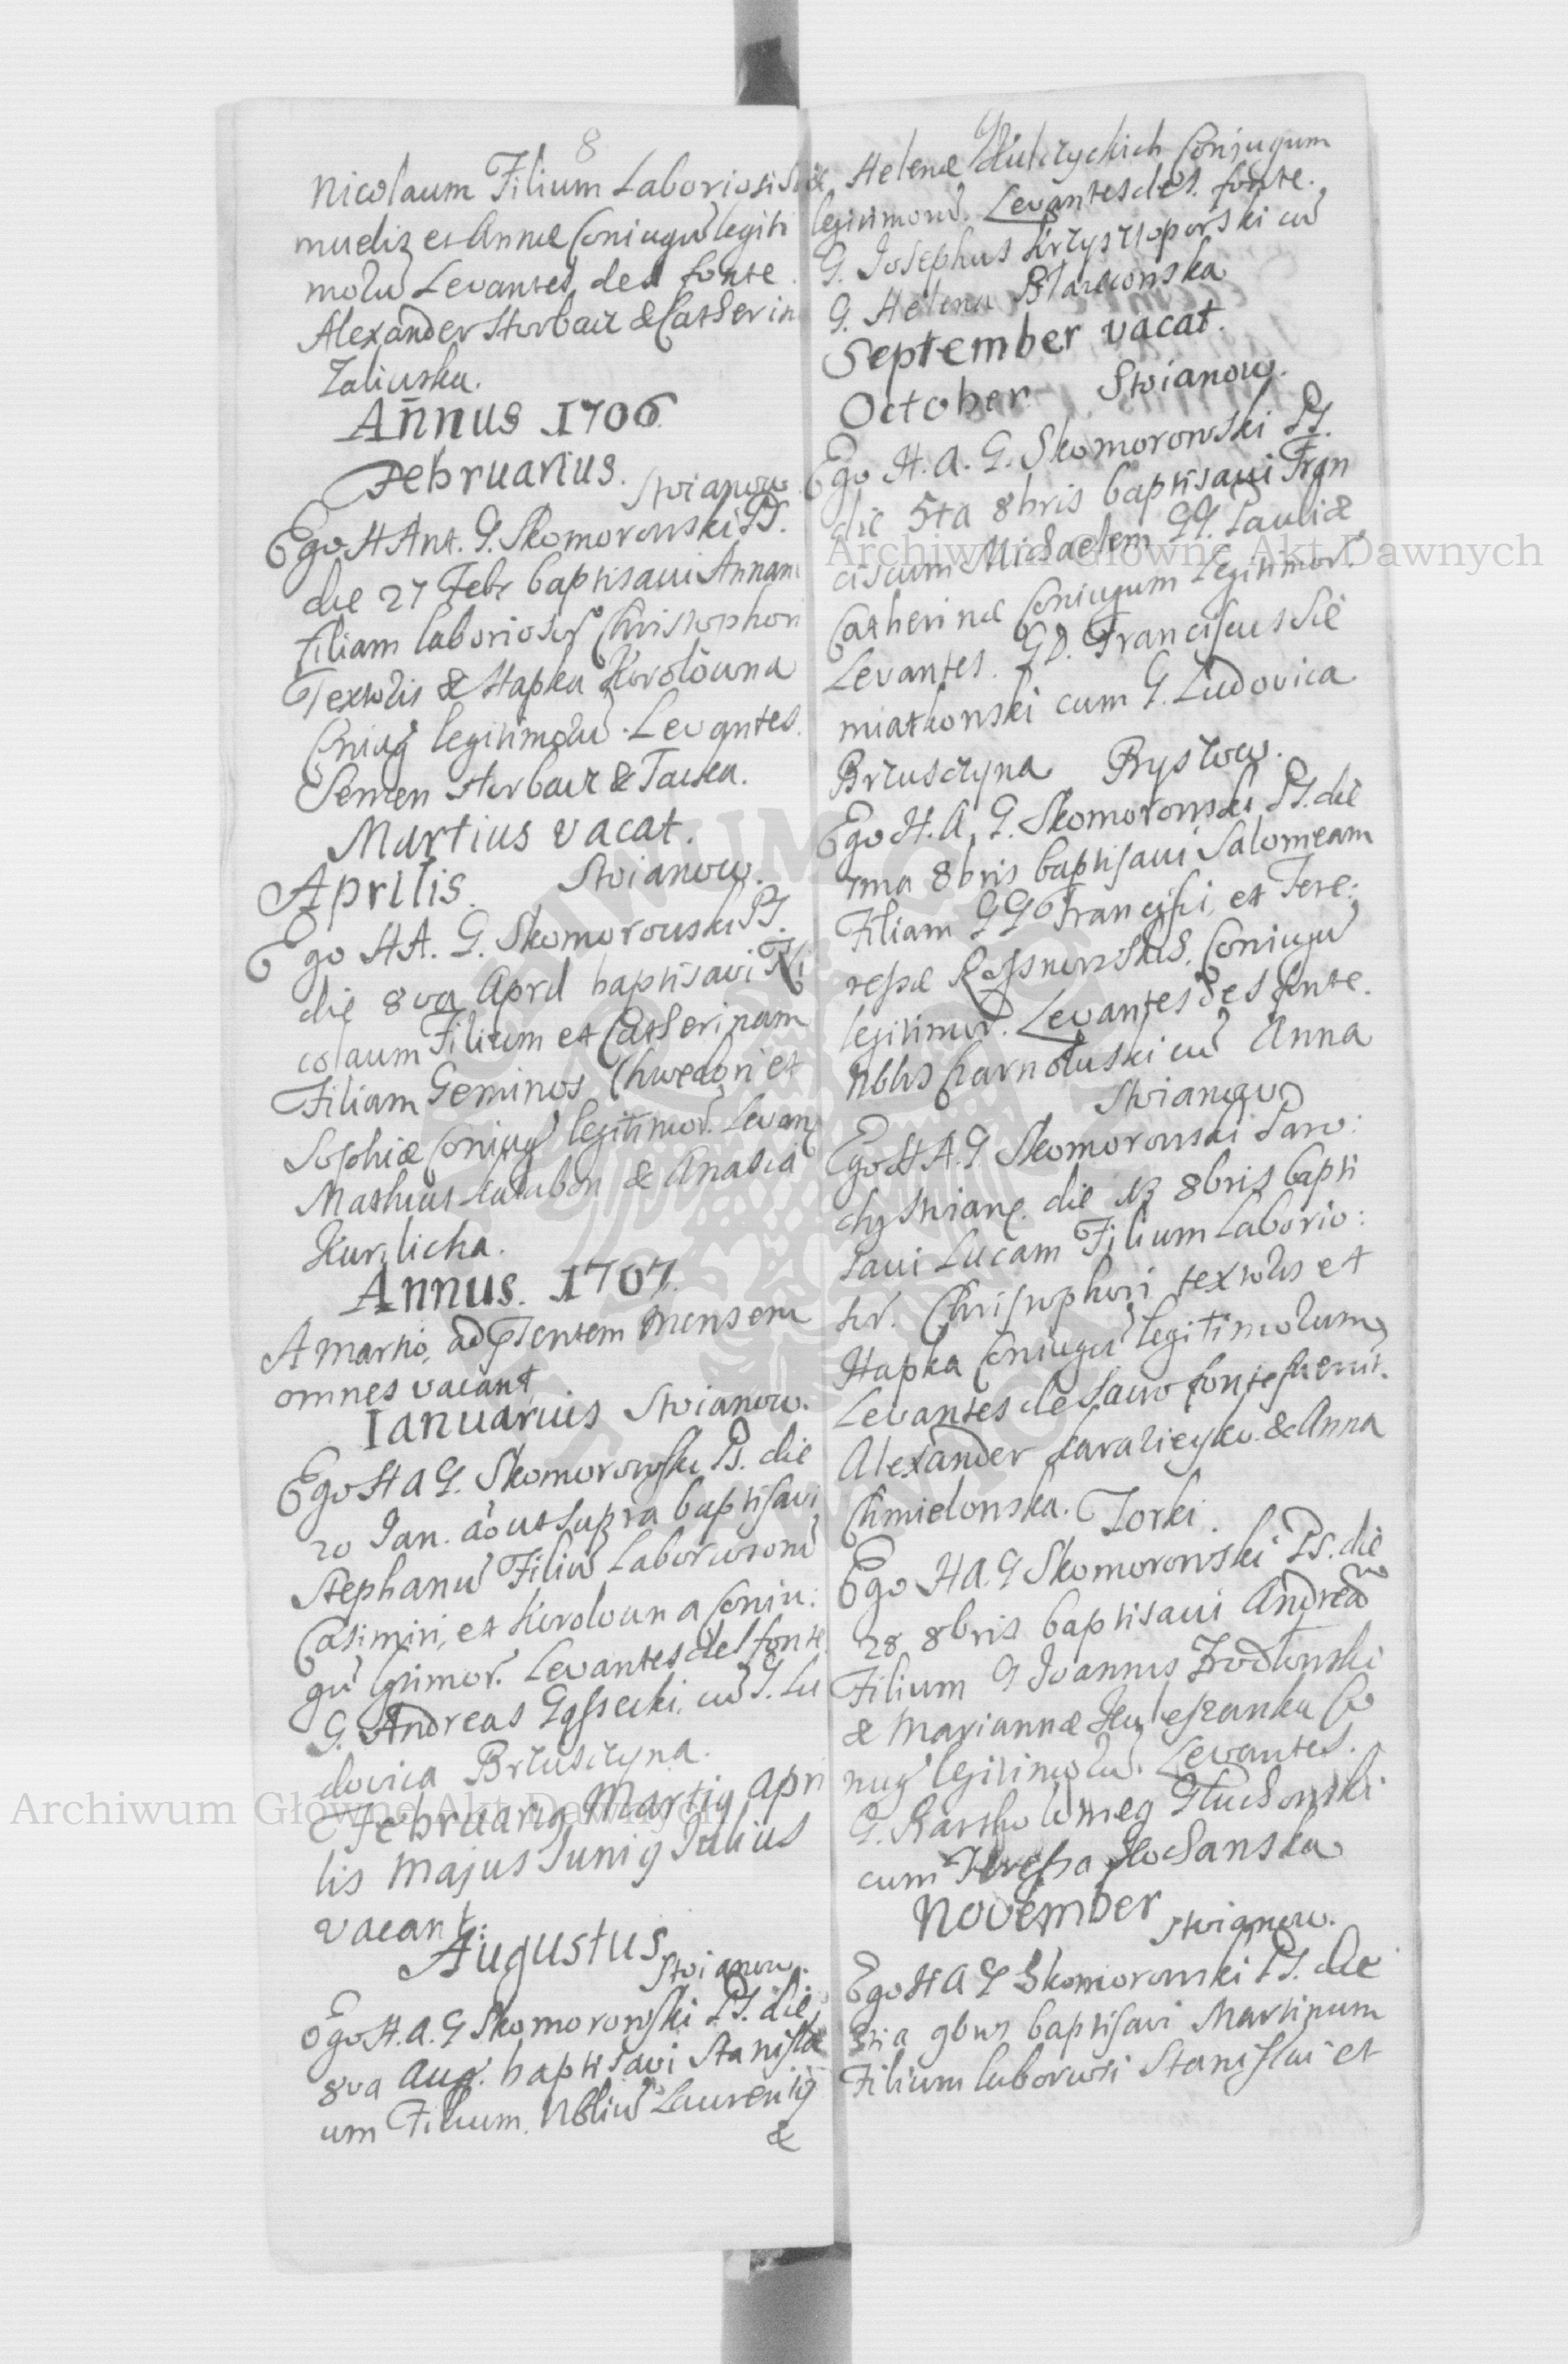 8
Nicolaum Filium Laboriosi
mudiz et Annæ Coniugũ legiti
molũ Levantes de s fonte
Alexander Horbacz & Catherin
Zaliwska.
Annus 1706
Februarius. Stoianow
Ego H Ant. G. Skomorowski PS.
die 27 Febr baptisaui Annam
Filiam laboriosor Christophori
Textoris & Hapka Korolowna
Coniug legitimolũ. Levantes.
Semen Horbacz & Tacka.
Martius vacat.
Aprilis. Stoianow.
Ego H A. G. Skomorowski PS.
die 8va April baptisavi Ni
colaum Filium et Catherinam
Filiam Geminos Chwedori et
Sophiæ Coniug legitimor. Levan
Mathias & Anasia
Kurilicha.
Annus. 1707.
A Martio, ad Mensem
omnes vacant
Ianuarius Stoianow.
Ego H A G. Skomorowski PS. die
20 Ian. ao ut supra baptisavi
Stephanũ Filiũ Laboriosorũ
Casimiri, et Korolowna Coniu:
gũ lgtimor. Levantes de s fonte
G. Andreas cũ G. Lu
dovica Brzusczyna.
Februarig Martig Apri
lis Majus Junig Julius
vacant:
Augustus Stoianow.
Ego H. A. G Skomorowski PS. die
8va Aug. baptisavi Stanisla
um Filium. Nbliũ Laurentij
&
9
Helenæ Hulczyckich Conjugum
legitimorũ. Levantes de s. fonte.
G. Josephus Krzysztoporski cũ
G. Helena
September vacat.
October Stoianow.
Ego H. A. G. Skomorowski PS.
die 5ta 8bris baptisaui Fran
ciscum Michaelem GG. Pauli &
Catherinæ Coniugum Legitimor.
Levantes. GD. Franciscus Sie
miatkowski cum G. Ludovica
Brzusczyna Byszow.
Ego H. A. G. Skomorowski PS. die
7ma 8bris baptisaui Salomeam
Filiam GG Francisci, et Tere:
ressæ Coniugũ
legitimor. Levantes de s fonte.
Nblis Czarnoluski cũ Anna
Stoianow
Ego H A. G Skomorowski Paro:
chg Stoiang. die 13 8bris bapti
saui Lucam Filium Laborio:
sor. Christophori textoris et
Hapka Coniugũ legitimolum
Levantes de Sacro fonte fuerunt.
Alexander & Anna
Chmielowska. Torki.
Ego H A. G Skomorowski PS. die
28 8bris baptisaui Andreã
Filium G Joannis Zrodlowski
& Mariannæ Kuleszanka Co
niug legitimolũ. Levantes.
G. Bartholomeg Gluchowski
cum Teressa
November Stoianow.
Ego H A G Skomorowski PS. die
3tia 9bris baptisavi Martinum
Filium laboriosi Stanislai et
Archiwum Główne Akt Dawnych
Archiwum Główne Akt Dawnych